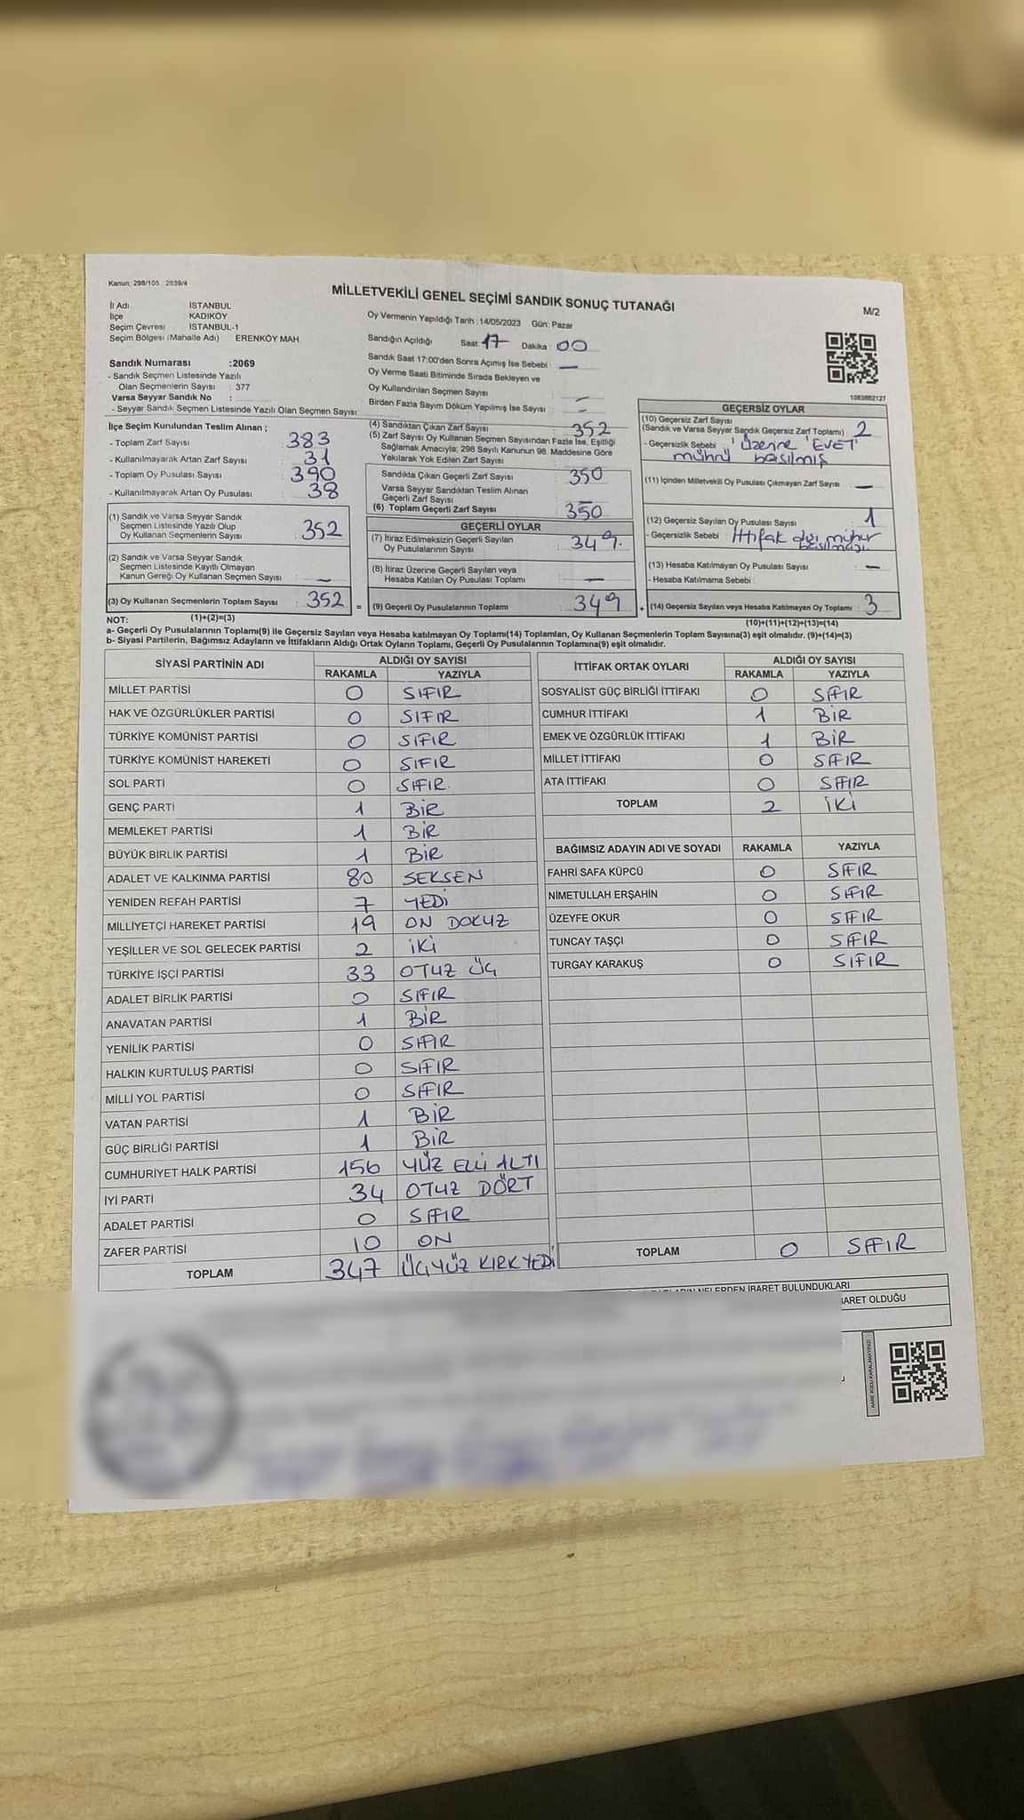 Kanun: 298/105 2839/4
MİLLETVEKİLİ GENEL SEÇİMİ SANDIK SONUÇ TUTANAĞI
M/2
İl Adı İSTANBUL
İlçe KADIKÖY
Seçim Çevresi İSTANBUL-1
Seçim Bölgesi (Mahalle Adı) ERENKÖY MAH
Sandık Numarası :2069
- Sandık Seçmen Listesinde Yazılı
Olan Seçmenlerin Sayısı : 377
Varsa Seyyar Sandık No :
- Seyyar Sandık Seçmen Listesinde Yazılı Olan Seçmen Sayısı:
Oy Vermenin Yapıldığı Tarih :14/05/2023 Gün: Pazar
Sandığın Açıldığı Saat 17 Dakika : 00
Sandık Saat 17:00'den Sonra Açılmış İse Sebebi : —
Oy Verme Saati Bitiminde Sırada Bekleyen ve
Oy Kullandırılan Seçmen Sayısı : —
Birden Fazla Sayım Döküm Yapılmış İse Sayısı : —
1083882127
İlçe Seçim Kurulundan Teslim Alınan ;
- Toplam Zarf Sayısı 383
- Kullanılmayarak Artan Zarf Sayısı 31
- Toplam Oy Pusulası Sayısı 390
- Kullanılmayarak Artan Oy Pusulası 38
(1) Sandık ve Varsa Seyyar Sandık
Seçmen Listesinde Yazılı Olup
Oy Kullanan Seçmenlerin Sayısı 352
(2) Sandık ve Varsa Seyyar Sandık
Seçmen Listesinde Kayıtlı Olmayan
Kanun Gereği Oy Kullanan Seçmen Sayısı —
(3) Oy Kullanan Seçmenlerin Toplam Sayısı 352
(4) Sandıktan Çıkan Zarf Sayısı 352
(5) Zarf Sayısı Oy Kullanan Seçmen Sayısından Fazla İse, Eşitliği
Sağlamak Amacıyla; 298 Sayılı Kanunun 98. Maddesine Göre
Yakılarak Yok Edilen Zarf Sayısı
Sandıkta Çıkan Geçerli Zarf Sayısı 350
Varsa Seyyar Sandıktan Teslim Alınan
Geçerli Zarf Sayısı —
(6) Toplam Geçerli Zarf Sayısı 350
GEÇERLİ OYLAR
(7) İtiraz Edilmeksizin Geçerli Sayılan
Oy Pusulalarının Sayısı 349.
(8) İtiraz Üzerine Geçerli Sayılan veya
Hesaba Katılan Oy Pusulası Toplamı —
= (9) Geçerli Oy Pusulalarının Toplamı 349
GEÇERSİZ OYLAR
(10) Geçersiz Zarf Sayısı
(Sandık ve Varsa Seyyar Sandık Geçersiz Zarf Toplamı) 2
- Geçersizlik Sebebi 'Üzerine 'EVET'
mührü basılmış
(11) İçinden Milletvekili Oy Pusulası Çıkmayan Zarf Sayısı —
(12) Geçersiz Sayılan Oy Pusulası Sayısı 1
- Geçersizlik Sebebi İttifak dışı mühür
(13) Hesaba Katılmayan Oy Pusulası Sayısı —
- Hesaba Katılmama Sebebi
(14) Geçersiz Sayılan veya Hesaba Katılmayan Oy Toplamı 3
NOT: (1)+(2)=(3) (10)+(11)+(12)+(13)=(14)
a- Geçerli Oy Pusulalarının Toplamı(9) ile Geçersiz Sayılan veya Hesaba katılmayan Oy Toplamı(14) Toplamları, Oy Kullanan Seçmenlerin Toplam Sayısına(3) eşit olmalıdır. (9)+(14)=(3)
b- Siyasi Partilerin, Bağımsız Adayların ve İttifakların Aldığı Ortak Oyların Toplamı, Geçerli Oy Pusulalarının Toplamına(9) eşit olmalıdır.
SİYASİ PARTİNİN ADI ALDIĞI OY SAYISI
RAKAMLA YAZIYLA
MİLLET PARTİSİ 0 SIFIR
HAK VE ÖZGÜRLÜKLER PARTİSİ 0 SIFIR
TÜRKİYE KOMÜNİST PARTİSİ 0 SIFIR
TÜRKİYE KOMÜNİST HAREKETİ 0 SIFIR
SOL PARTİ 0 SIFIR.
GENÇ PARTİ 1 BİR
MEMLEKET PARTİSİ 1 BİR
BÜYÜK BİRLİK PARTİSİ 1 BİR
ADALET VE KALKINMA PARTİSİ 80 SEKSEN
YENİDEN REFAH PARTİSİ 7 YEDİ
MİLLİYETÇİ HAREKET PARTİSİ 19 ON DOKUZ
YEŞİLLER VE SOL GELECEK PARTİSİ 2 İKİ
TÜRKİYE İŞÇİ PARTİSİ 33 OTUZ ÜÇ
ADALET BİRLİK PARTİSİ 0 SIFIR
ANAVATAN PARTİSİ 1 BİR
YENİLİK PARTİSİ 0 SIFIR
HALKIN KURTULUŞ PARTİSİ 0 SIFIR
MİLLİ YOL PARTİSİ 0 SIFIR
VATAN PARTİSİ 1 BİR
GÜÇ BİRLİĞİ PARTİSİ 1 BİR
CUMHURİYET HALK PARTİSİ 156 YÜZ ELLİ ALTI
İYİ PARTİ 34 OTUZ DÖRT
ADALET PARTİSİ 0 SIFIR
ZAFER PARTİSİ 10 ON
TOPLAM 347 ÜÇYÜZ KIRKYEDİ
İTTİFAK ORTAK OYLARI ALDIĞI OY SAYISI
RAKAMLA YAZIYLA
SOSYALİST GÜÇ BİRLİĞİ İTTİFAKI 0 SIFIR
CUMHUR İTTİFAKI 1 BİR
EMEK VE ÖZGÜRLÜK İTTİFAKI 1 BİR
MİLLET İTTİFAKI 0 SIFIR
ATA İTTİFAKI 0 SIFIR
TOPLAM 2 İKİ
BAĞIMSIZ ADAYIN ADI VE SOYADI RAKAMLA YAZIYLA
FAHRİ SAFA KÜPCÜ 0 SIFIR
NİMETULLAH ERŞAHİN 0 SIFIR
ÜZEYFE OKUR 0 SIFIR
TUNCAY TAŞÇI 0 SIFIR
TURGAY KARAKUŞ 0 SIFIR
TOPLAM 0 SIFIR
NELERDEN İBARET BULUNDUKLARI
İBARET OLDUĞU